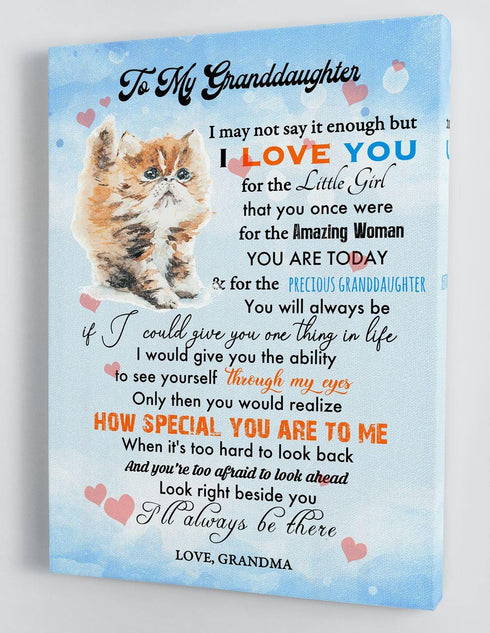 To My Granddaughter
I may not say it enough but
I LOVE YOU
for the Little Girl
that you once were
for the Amazing Woman
YOU ARE TODAY
& for the PRECIOUS GRANDDAUGHTER
You will always be
if I could give you one thing in life
I would give you the ability
to see yourself through my eyes
Only then you would realize
HOW SPECIAL YOU ARE TO ME
When it's too hard to look back
And you're too afraid to look ahead
Look right beside you
I'll always be there
LOVE, GRANDMA